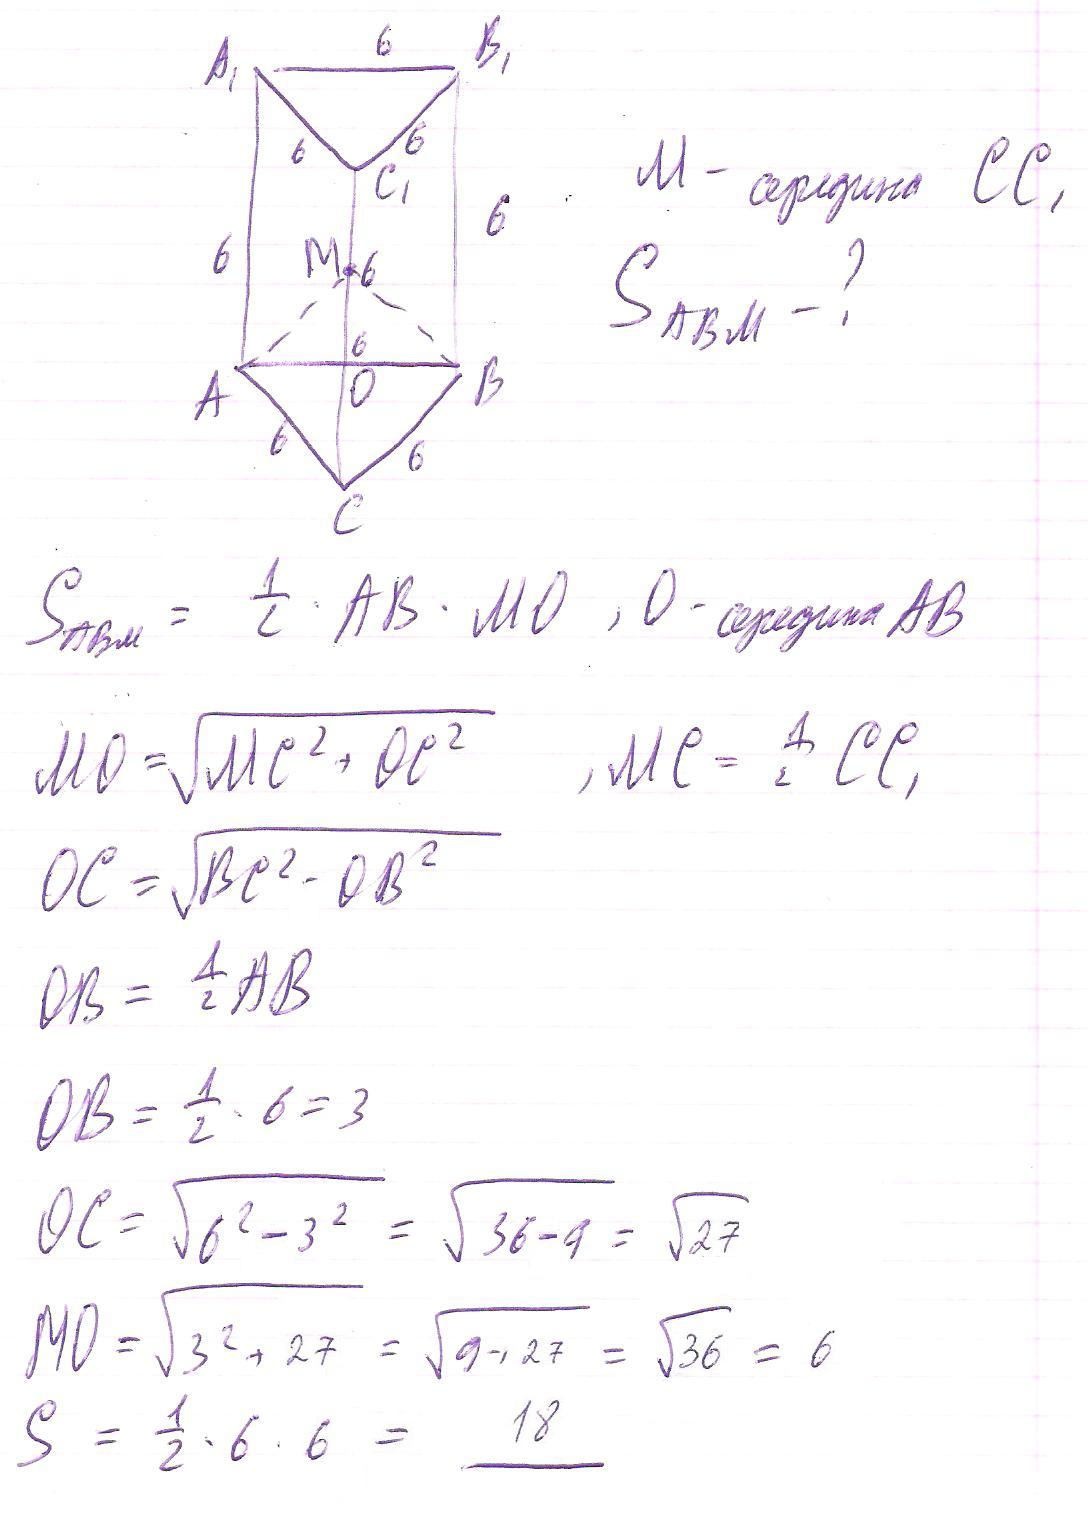 6
A₁ B₁
6 6
C₁
M - середина CC₁
6 6
M 6
S_ABM - ?
6
A O B
6 6
C
S_ABM = 1/2 · AB · MO , O - середина AB
MO = √(MC² + OC²) , MC = 1/2 CC₁
OC = √(BC² - OB²)
OB = 1/2 AB
OB = 1/2 · 6 = 3
OC = √(6² - 3²) = √(36 - 9) = √27
MO = √(3² + 27) = √(9 + 27) = √36 = 6
S = 1/2 · 6 · 6 = 18